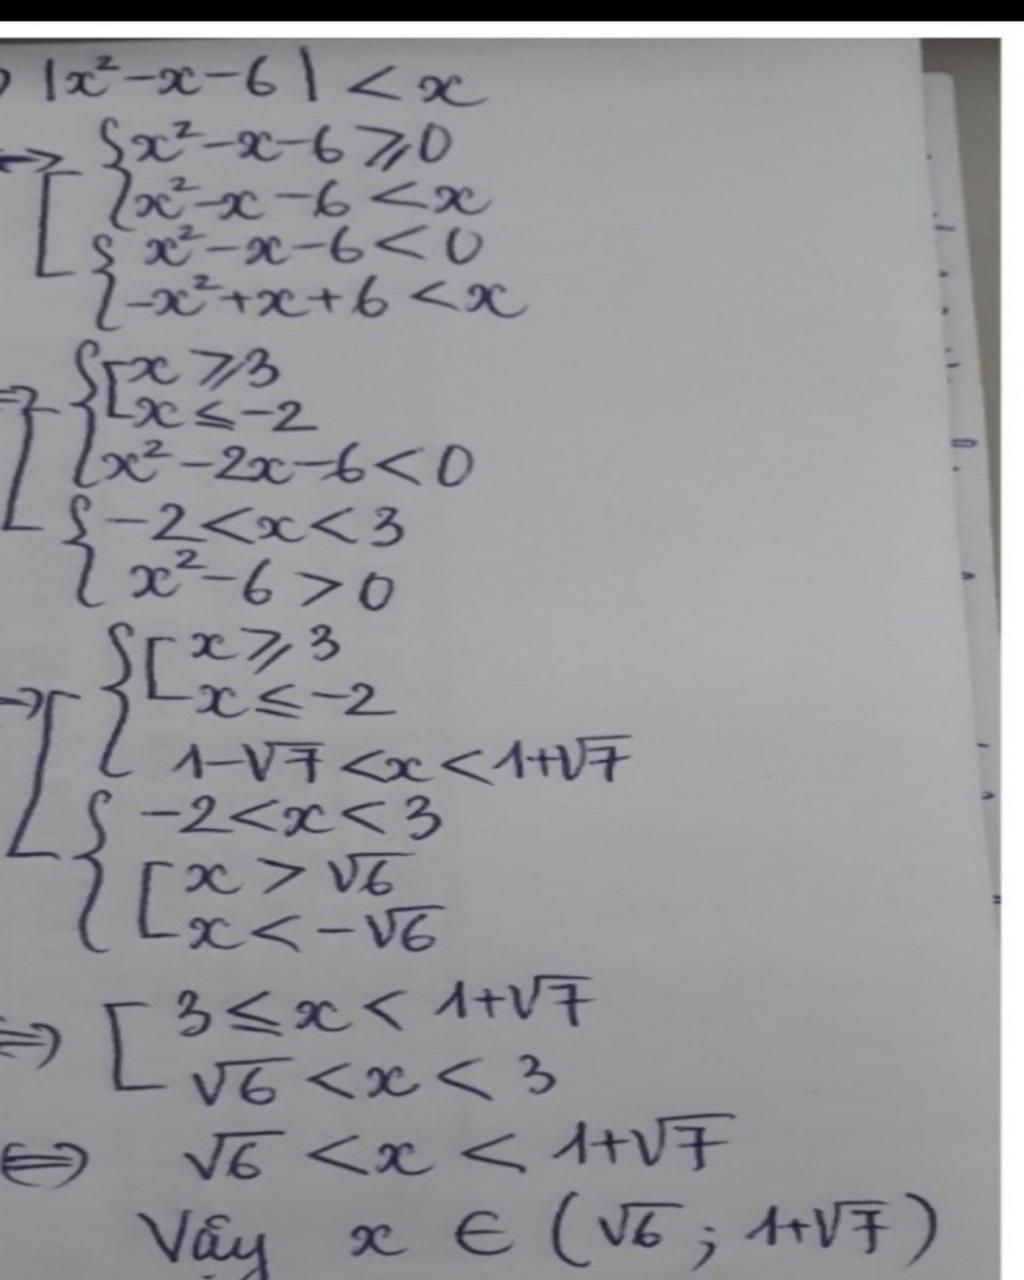 ) |x²-x-6| < x
⟺ [ { x²-x-6 ⩾ 0
x²-x-6 < x
{ x²-x-6 < 0
-x²+x+6 < x
⟺ [ { [ x ⩾ 3
x ≤ -2
x²-2x-6 < 0
{ -2 < x < 3
x²-6 > 0
⟺ [ { [ x ⩾ 3
x ≤ -2
1-√7 < x < 1+√7
{ -2 < x < 3
[ x > √6
x < -√6
⟺ [ 3 ≤ x < 1+√7
√6 < x < 3
⟺ √6 < x < 1+√7
Vậy x ∈ (√6 ; 1+√7)